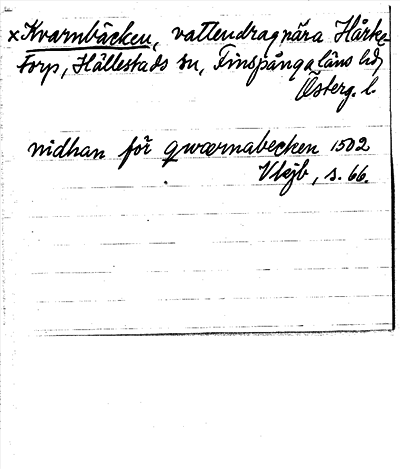 ×Kvarnbäcken, vattendrag nära Hårke-
torp, Hällestads sn, Finspånga läns hd,
Österg. l.
nidhan för qwærnabecken 1502
Vkjb, s. 66.